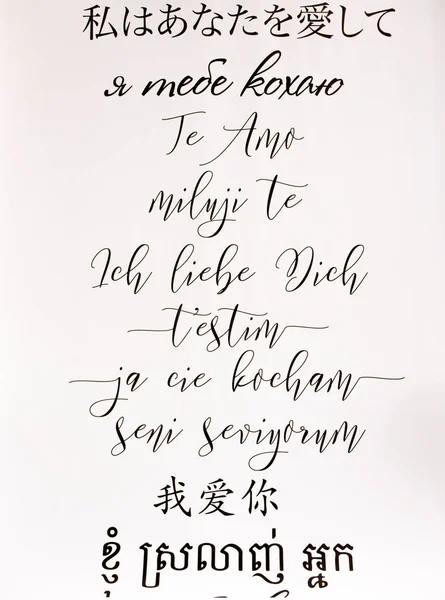 私はあなたを愛して
я тебе кохаю
Te Amo
miluji te
Ich liebe Dich
t'estim
ja cie kocham
seni seviyorum
我爱你
ខ្ញុំ ស្រលាញ់ អ្នក